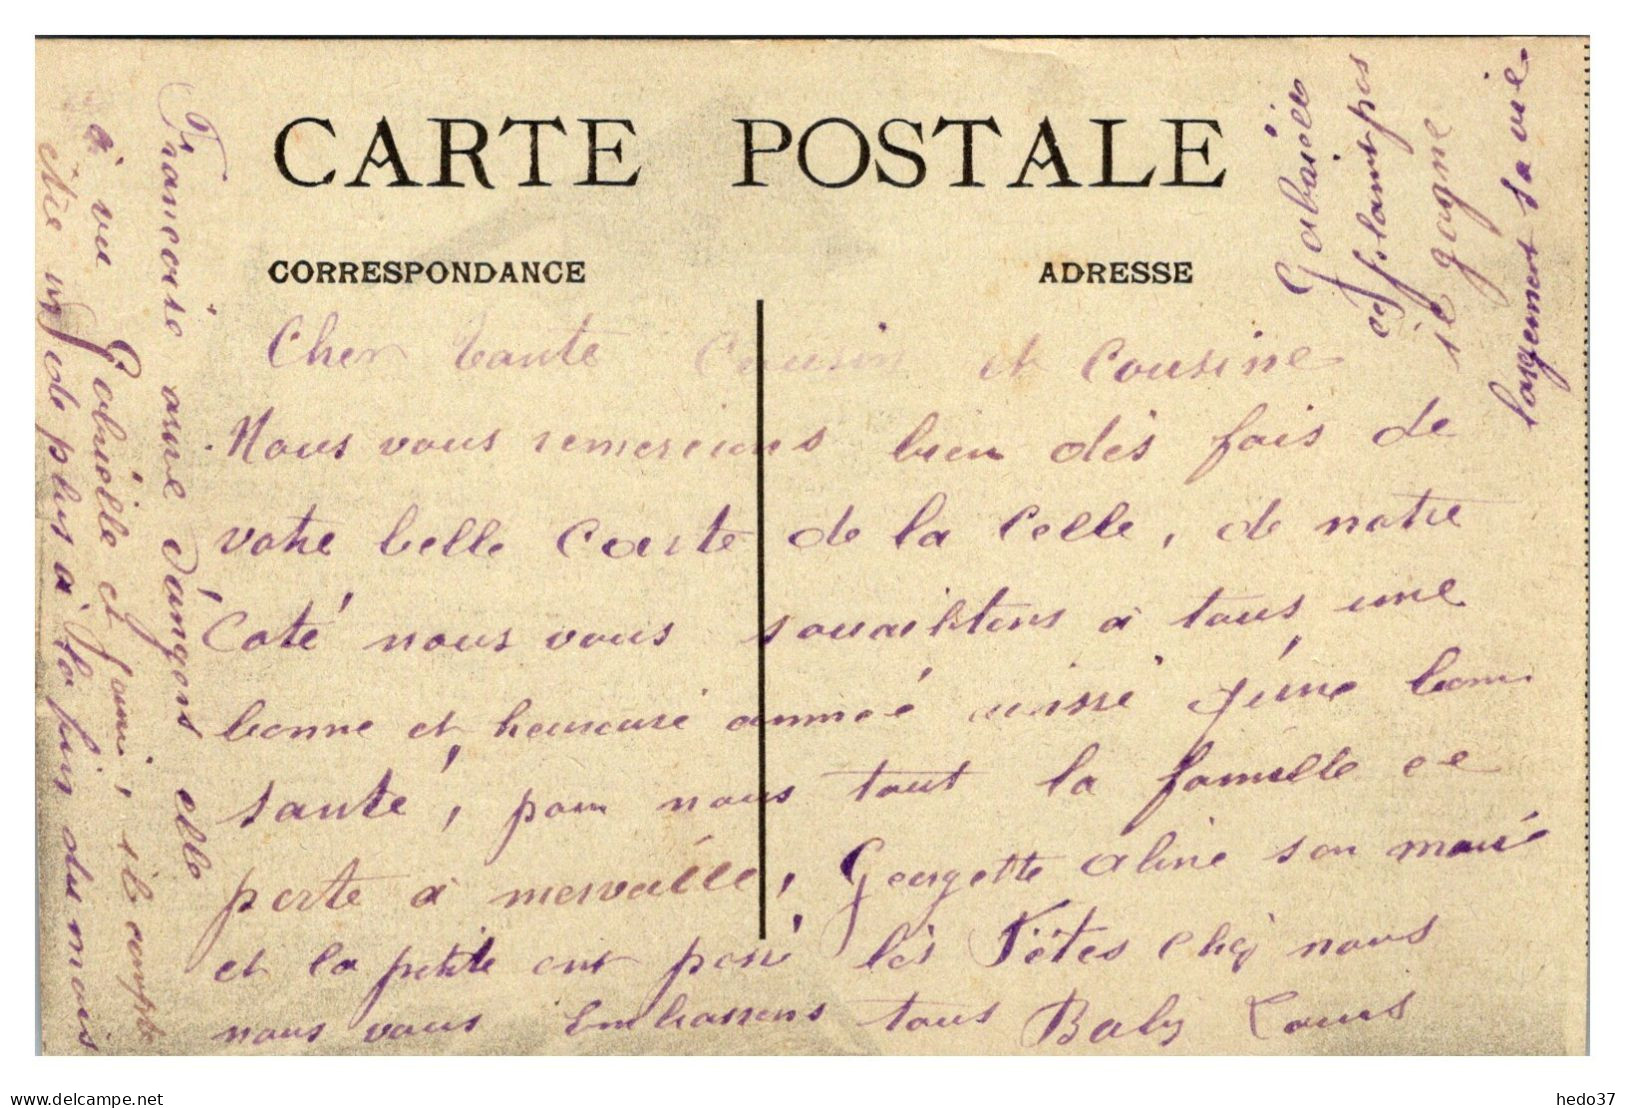 CARTE POSTALE
CORRESPONDANCE
ADRESSE
Cher tante Cousin et Cousine
Nous vous remercions bien dès fois de
votre belle Carte de la Celle, de notre
Coté nous vous souaihtons a tous une
bonne et heureuse année aussi d'une bonne
santé, pour nous tout la famille ce
porte a mervaille, Georgette aline son marie
et la petite ont passé les Fêtes chez nous
nous vous Embrassons tous Baly Louis
Francoise arive d'angers elle
à vu Gabriélle et famie, il compte
être un de plus à la fin du mois
Gabriélle
ne plaint pas
il gagne
largement sa vie
hedo37